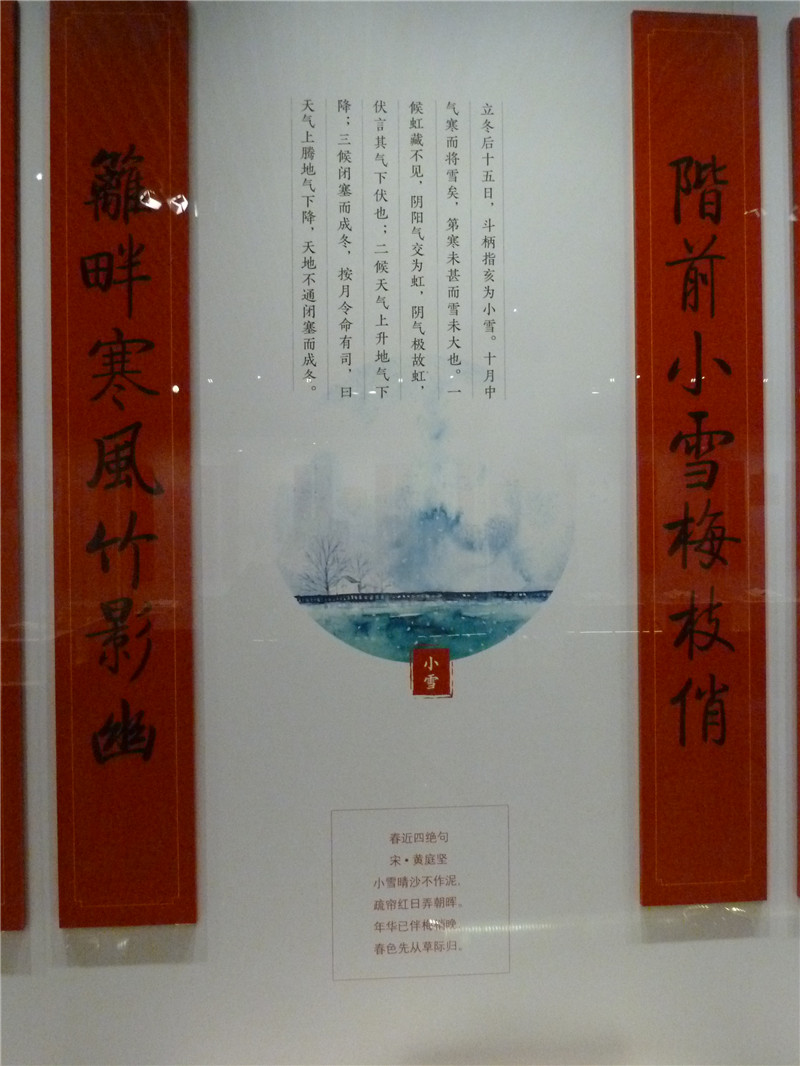 階前小雪梅枝俏
立冬后十五日，斗柄指亥为小雪。十月中
气寒而将雪矣，第寒未甚而雪未大也。一
候虹藏不见，阴阳气交为虹，阴气极故虹，
伏言其气下伏也；二候天气上升地气下
降；三候闭塞而成冬，按月令命有司，曰
天气上腾地气下降，天地不通闭塞而成冬。
籬畔寒風竹影幽
小雪
春近四绝句
宋·黄庭坚
小雪晴沙不作泥，
疏帘红日弄朝晖。
年华已伴梅梢晚
春色先从草际归。